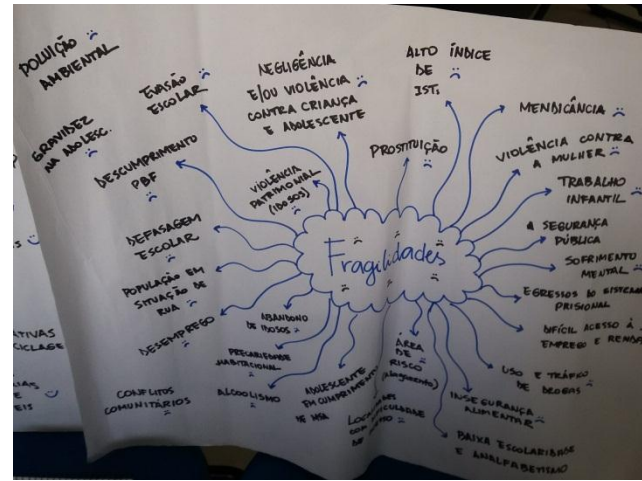 POLUIÇÃO
AMBIENTAL
GRAVIDEZ
NA ADOLESC.
EVASÃO
ESCOLAR
NEGLIGÊNCIA
E/OU VIOLÊNCIA
CONTRA CRIANÇA
E ADOLESCENTE
ALTO ÍNDICE
DE
IST,
PROSTITUIÇÃO
MENDICÂNCIA
VIOLÊNCIA CONTRA
A MULHER
TRABALHO
INFANTIL
A SEGURANÇA
PÚBLICA
SOFRIMENTO
MENTAL
EGRESSOS DO SISTEMA
PRISIONAL
DIFÍCIL ACESSO À
EMPREGO E RENDA
USO E TRÁFICO
DE DROGAS
INSEGURANÇA
ALIMENTAR
BAIXA ESCOLARIDADE
E ANALFABETISMO
DESCUMPRIMENTO
PBF
VIOLÊNCIA
PATRIMONIAL
(IDOSOS)
Fragilidades
DEFASAGEM
ESCOLAR
POPULAÇÃO EM
SITUAÇÃO DE
RUA
DESEMPREGO
ABANDONO
DE IDOSOS
PRECARIEDADE
HABITACIONAL
ALCOOLISMO
CONFLITOS
COMUNITÁRIOS
ADOLESCENTE
EM CUMPRIMENTO
DE MSA
ÁREA
DE
RISCO
(alagamento)